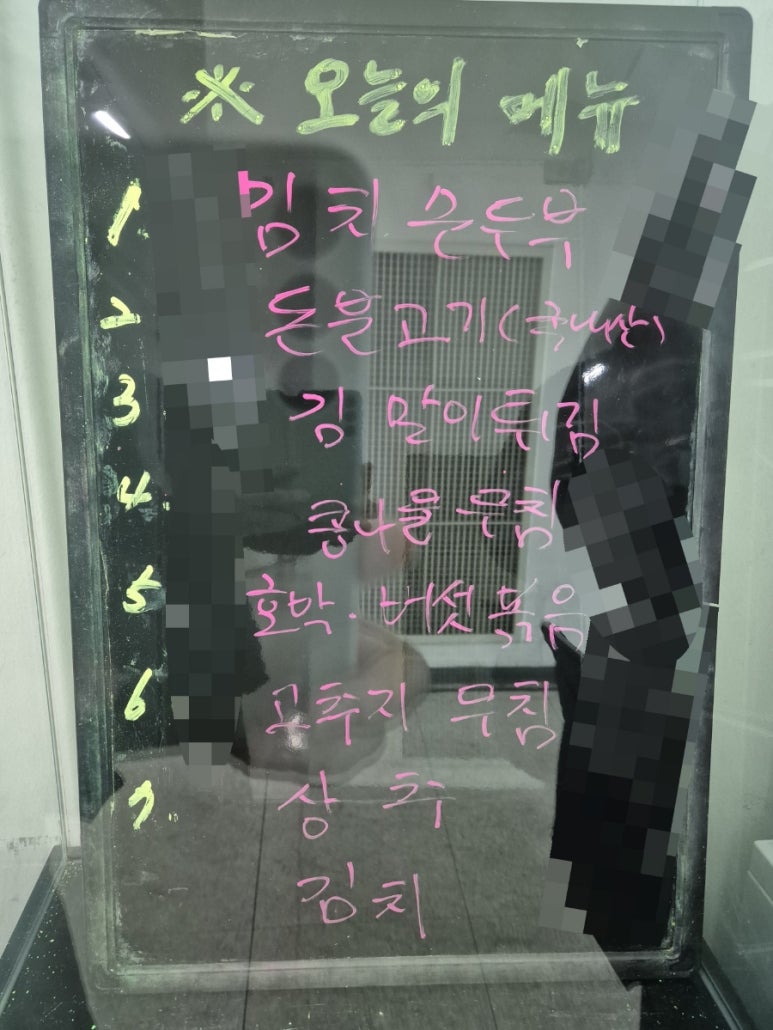 ※ 오늘의 메뉴
1. 김치 순두부
2 돈불고기(국내산)
3 김 말이튀김
4. 콩나물 무침
5 호박·버섯 볶음
6 고추지 무침
7. 상추
김치